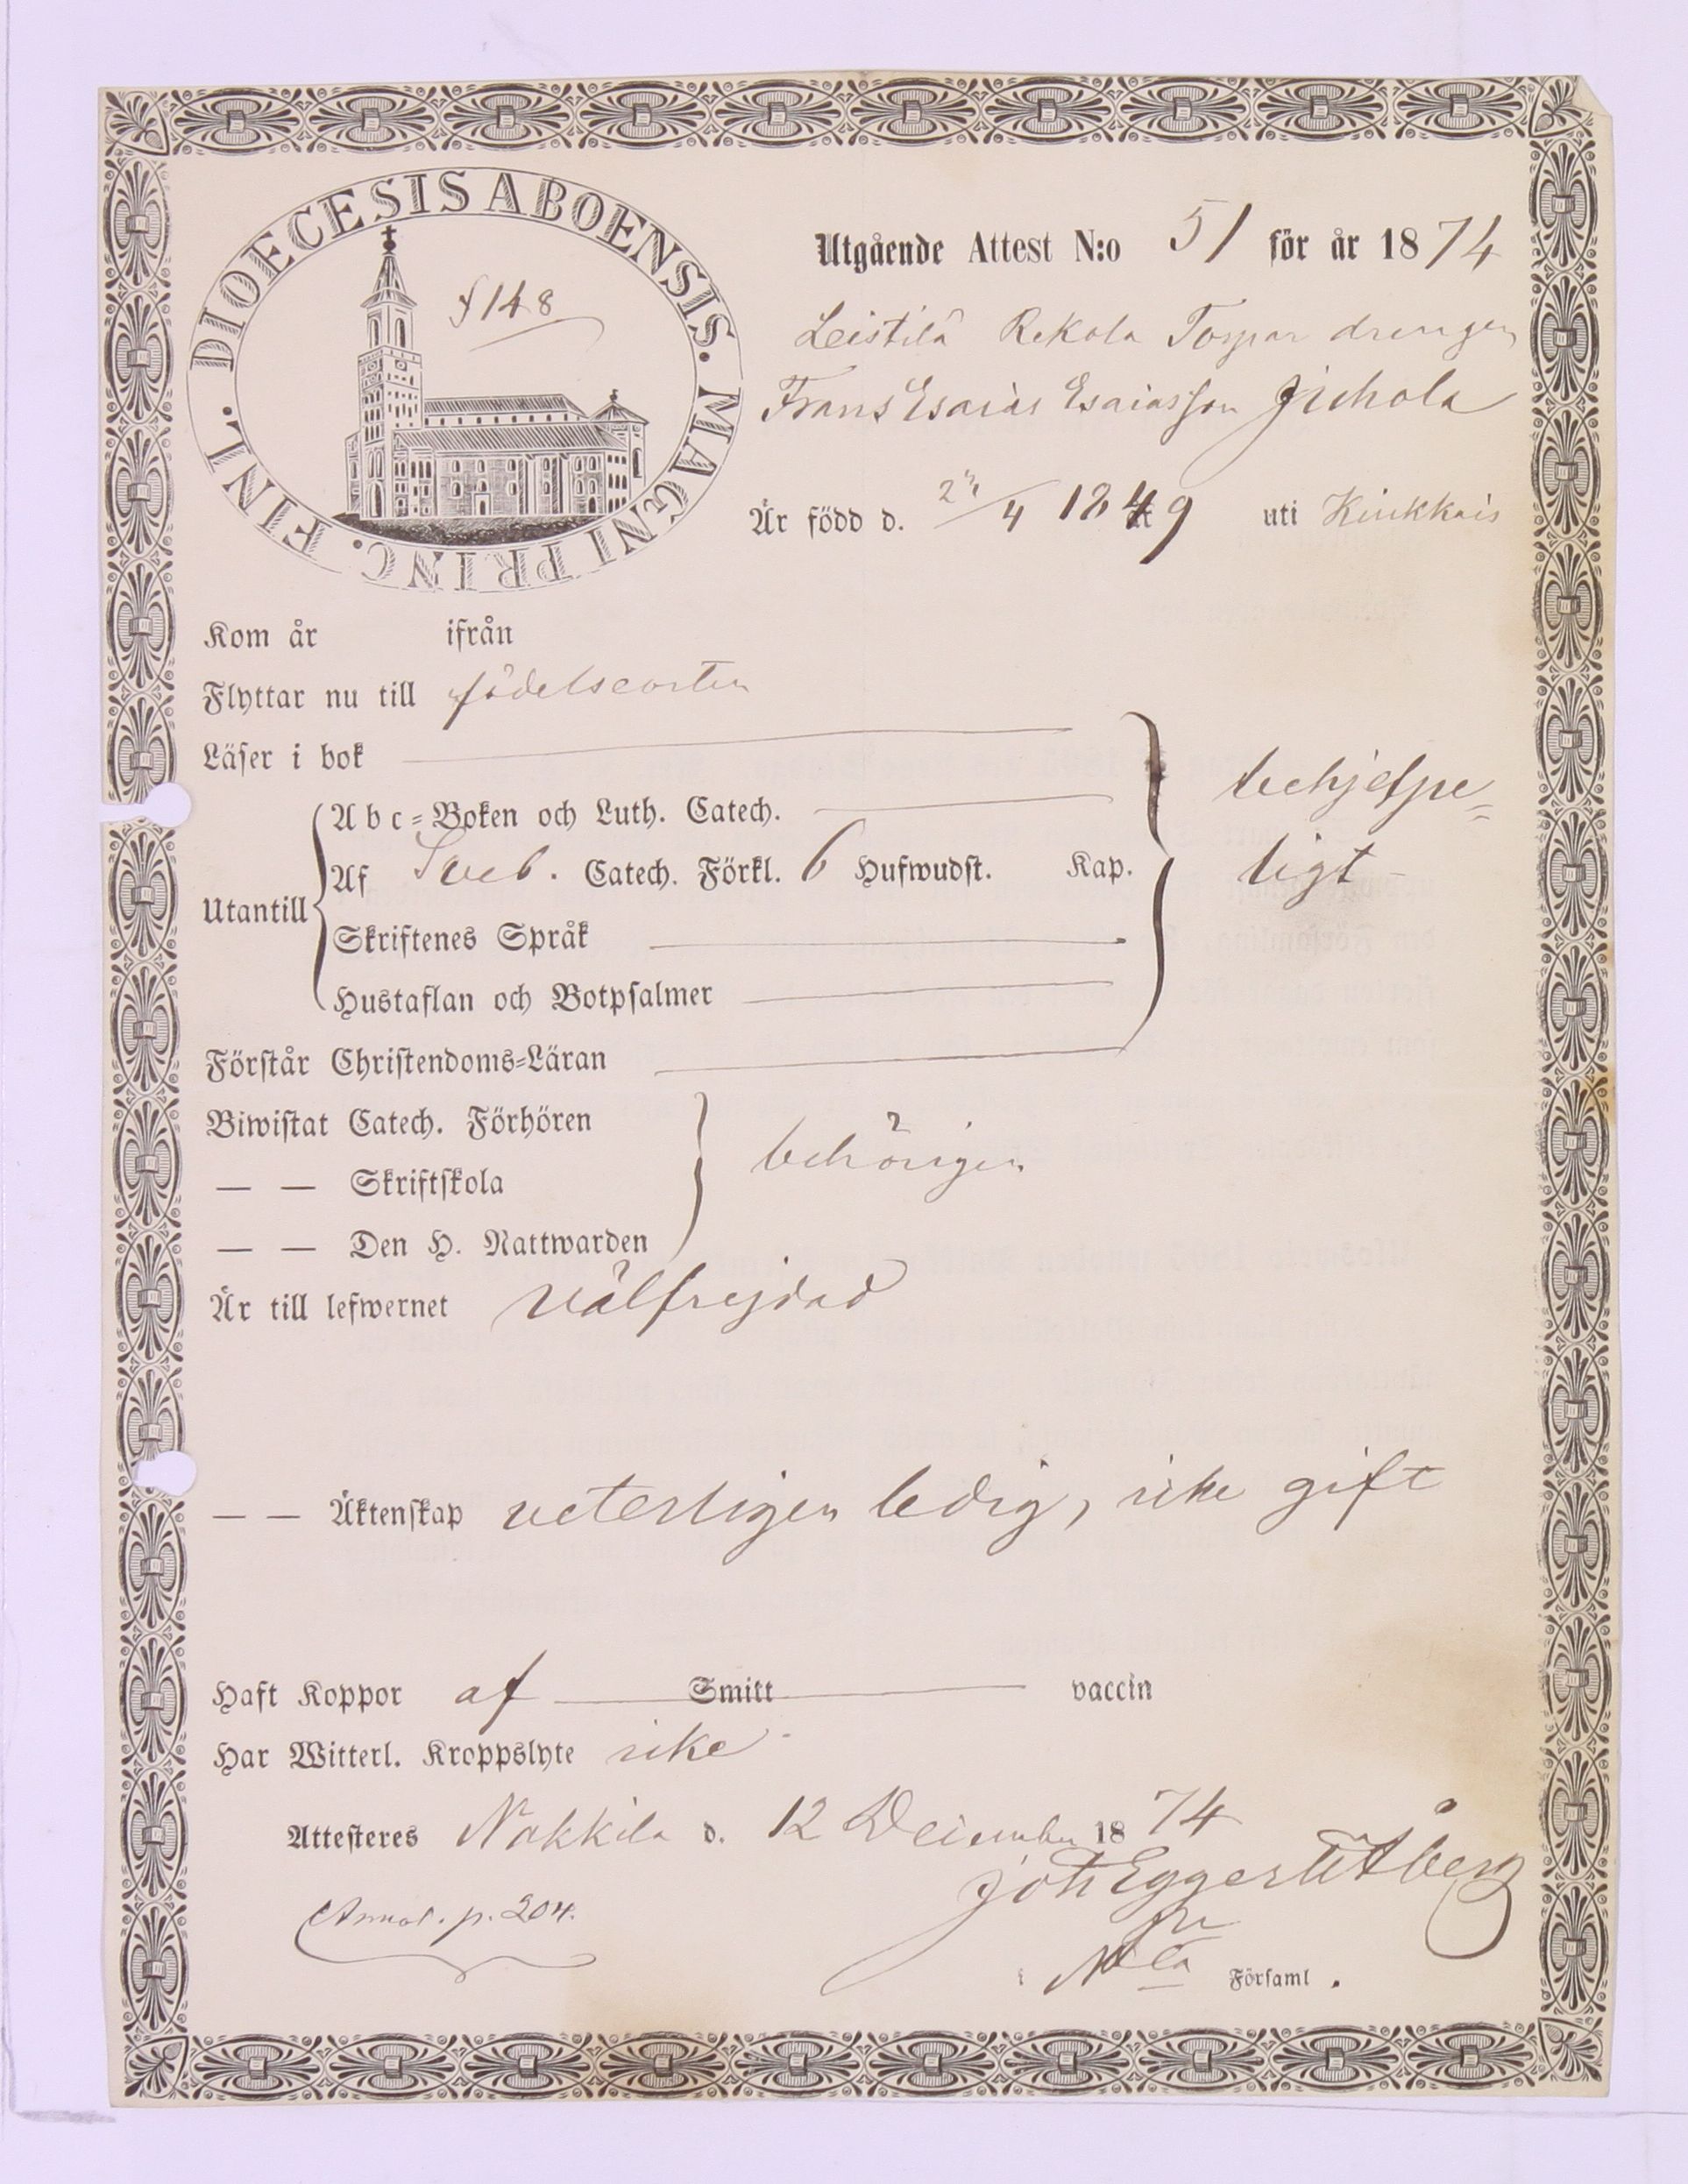 DIOECESIS ABOENSIS. MAGNI PRINC. FINL.
§ 148
Utgående Attest N:o 51 för år 1874
Leistilä Rekola Torpar drengen
Frans Esaias Esaiasson
Är född d. /4 1849 uti
Kom år ifrån
Flyttar nu till födelseorten
Läser i bok
behjelpe=
ligt
Utantill
Abc=Boken och Luth. Catech.
Af Sveb. Catech. Förkl. 6 Hufwudst. Kap.
Skriftenes Språk
Hustaflan och Botpsalmer
Förstår Christendoms=Läran
Biwistat Catech. Förhören
— — Skriftskola
behörigen
— — Den H. Nattwarden
Är till lefwernet välfrejdad
— — Äktenskap veterligen ledig, icke gift
Haft Koppor af Smitt vaccin
Har Witterl. Kroppslyte icke
Attesteres Nakkila d. 12 December 1874
Joh Eggert Åberg
Annot. p. 204.
i N la Församl.